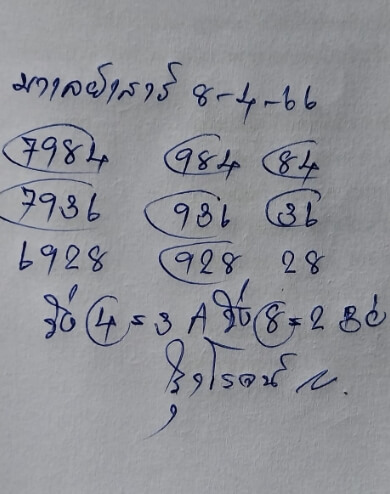 มาเลย์เสาร์ 8-4-66
7984 984 84
7936 936 36
6928 928 28
วิ่ง 4=3 A วิ่ง 8=2